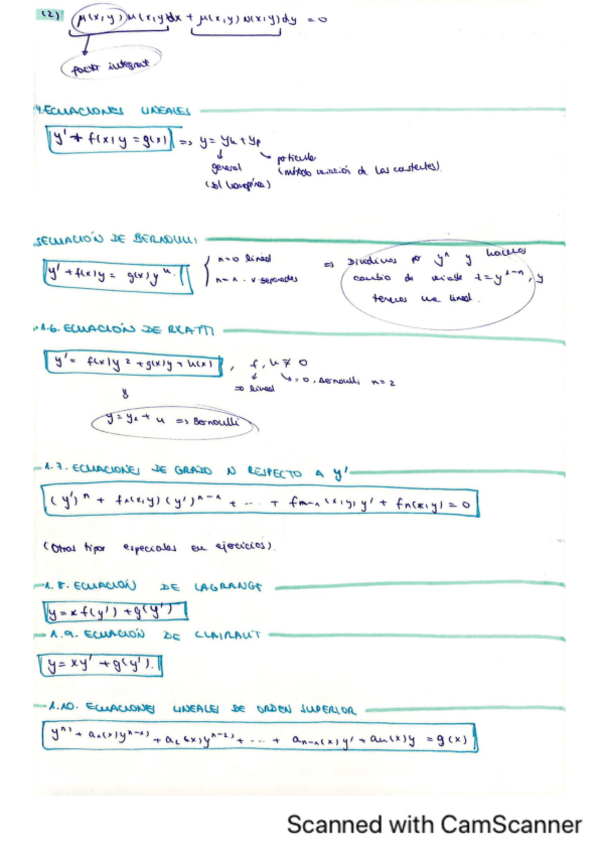 (2) μ(x,y) M(x,y)dx + μ(x,y) N(x,y)dy = 0
factor integrant
4. ECUACIONES LINEALES
y' + f(x)y = g(x) => y = yh + yp
general particular
(sol homogénea) (método variación de las constantes)
.5 ECUACIÓN DE BERNOULLI
y' + f(x)y = g(x) y^n. { n=0 lineal
n=1 . v separades
=> Dividimos por y^n y hacemos
cambio de t = y^{1-n}, y
tenemos una lineal.
1.6. ECUACIÓN DE RICATTI
y' = f(x)y^2 + g(x)y + h(x) , f, h ≠ 0
=> lineal =0, Bernoulli n=2
y = y1 + u => Bernoulli
1.7. ECUACIONES DE GRADO N RESPECTO A y'
(y')^n + f1(x,y) (y')^{n-1} + ... + fn-1(x,y) y' + fn(x,y) = 0
(Otros tipos especiales en ejercicios).
1.8. ECUACIÓN DE LAGRANGE
y = x f(y') + g(y')
1.9. ECUACIÓN DE CLAIRAUT
y = xy' + g(y').
1.10. ECUACIONES LINEALES DE ORDEN SUPERIOR
y^{n)} + a1(x)y^{n-1)} + a2(x)y^{n-2)} + ... + an-1(x)y' + an(x)y = g(x)
Scanned with CamScanner